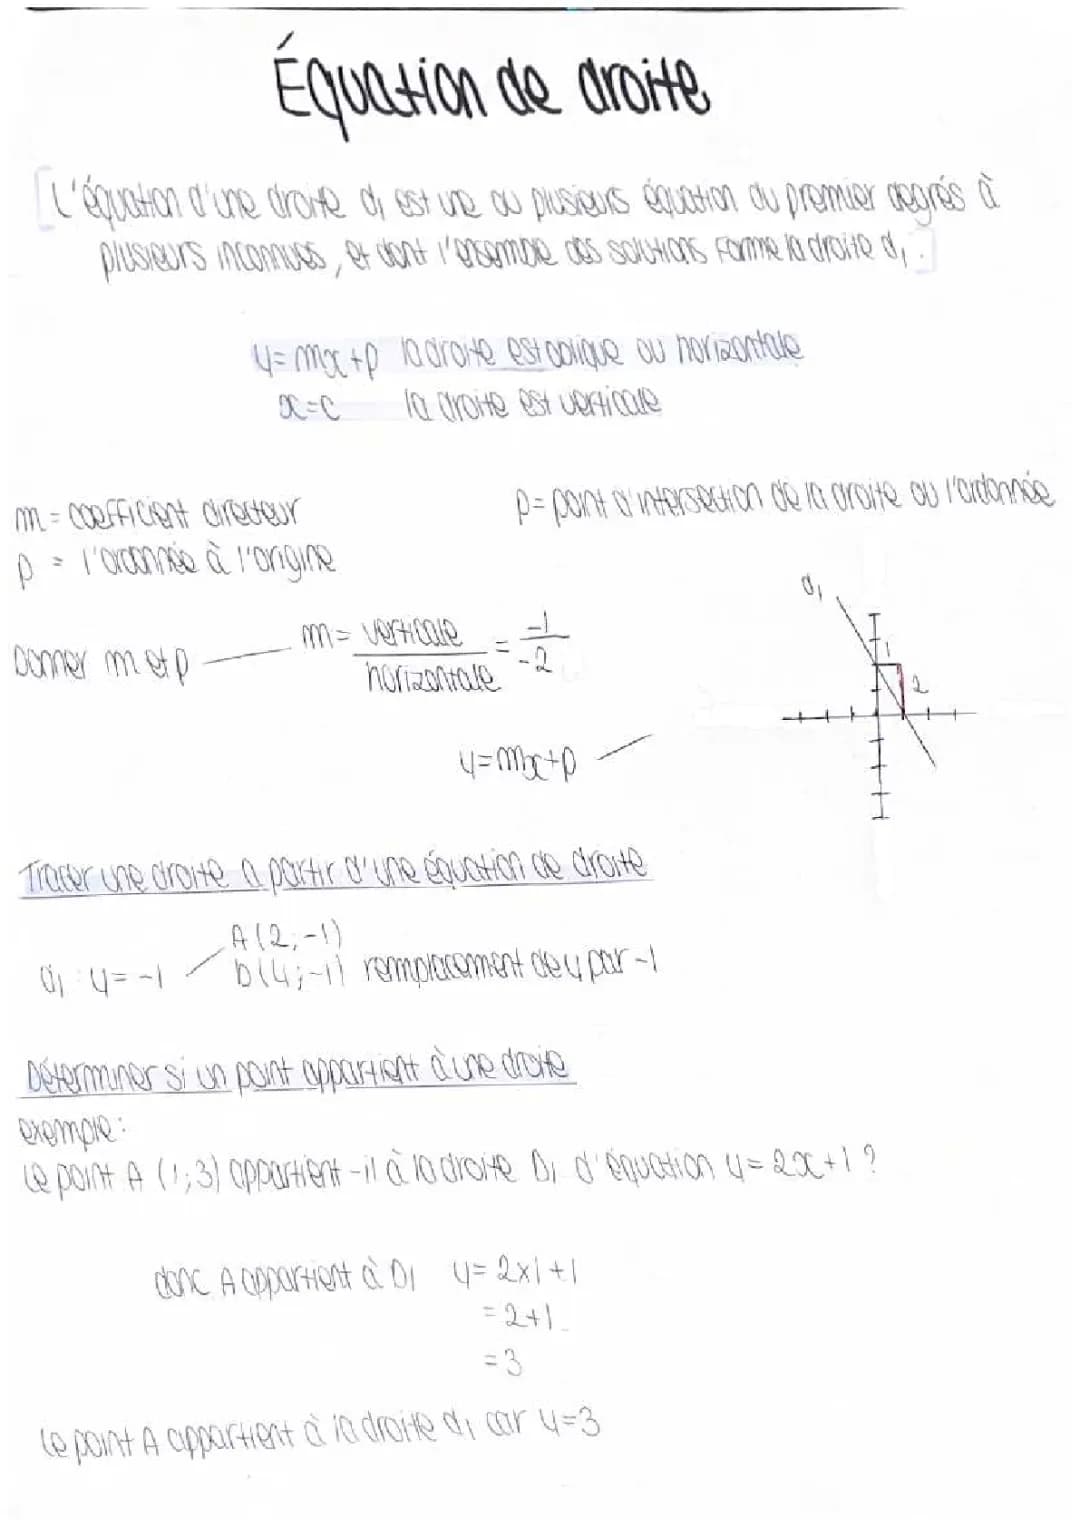 Équation de droite
[L'équation d'une droite d₁ est une ou plusieurs équation du premier degrés à
plusieurs inconnues, et dont l'ensemble des solutions forme la droite d₁.]
y=mx+p la droite est oblique ou horizontale
x=c la droite est verticale
m = coefficient directeur
p = l'ordonnée à l'origine
p= point d'intersection de la droite ou l'ordonnée
Donner m et p
m= verticale / horizontale = -1 / -2
d₁
1
2
y=mx+p
Tracer une droite a partir d'une équation de droite
A(2;-1)
d₁ : y=-1
b(4;-1) remplacement de y par -1
Déterminer si un point appartient à une droite
exemple:
le point A (1;3) appartient-il à la droite D₁ d'équation y=2x+1?
donc A appartient à D₁ y= 2x1+1
=2+1
=3
le point A appartient à la droite d₁ car y=3